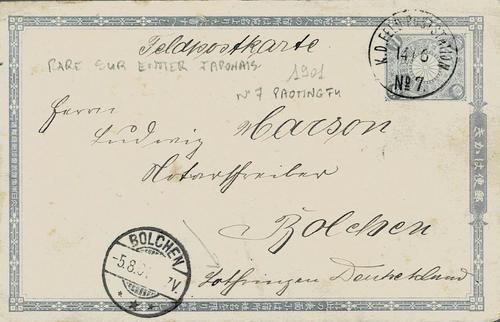 Feldpostkarte
RARE SUR ENTIER JAPONAIS
1901
N°7 PAOTINGFU
K.D. FELD-POSTSTATION
14/6
No 7.
Herrn
Ludwig Marson
Notarschreiber
Bolchen
Lothringen Deutschland
BOLCHEN
-5.8.
V.
郵便はかき